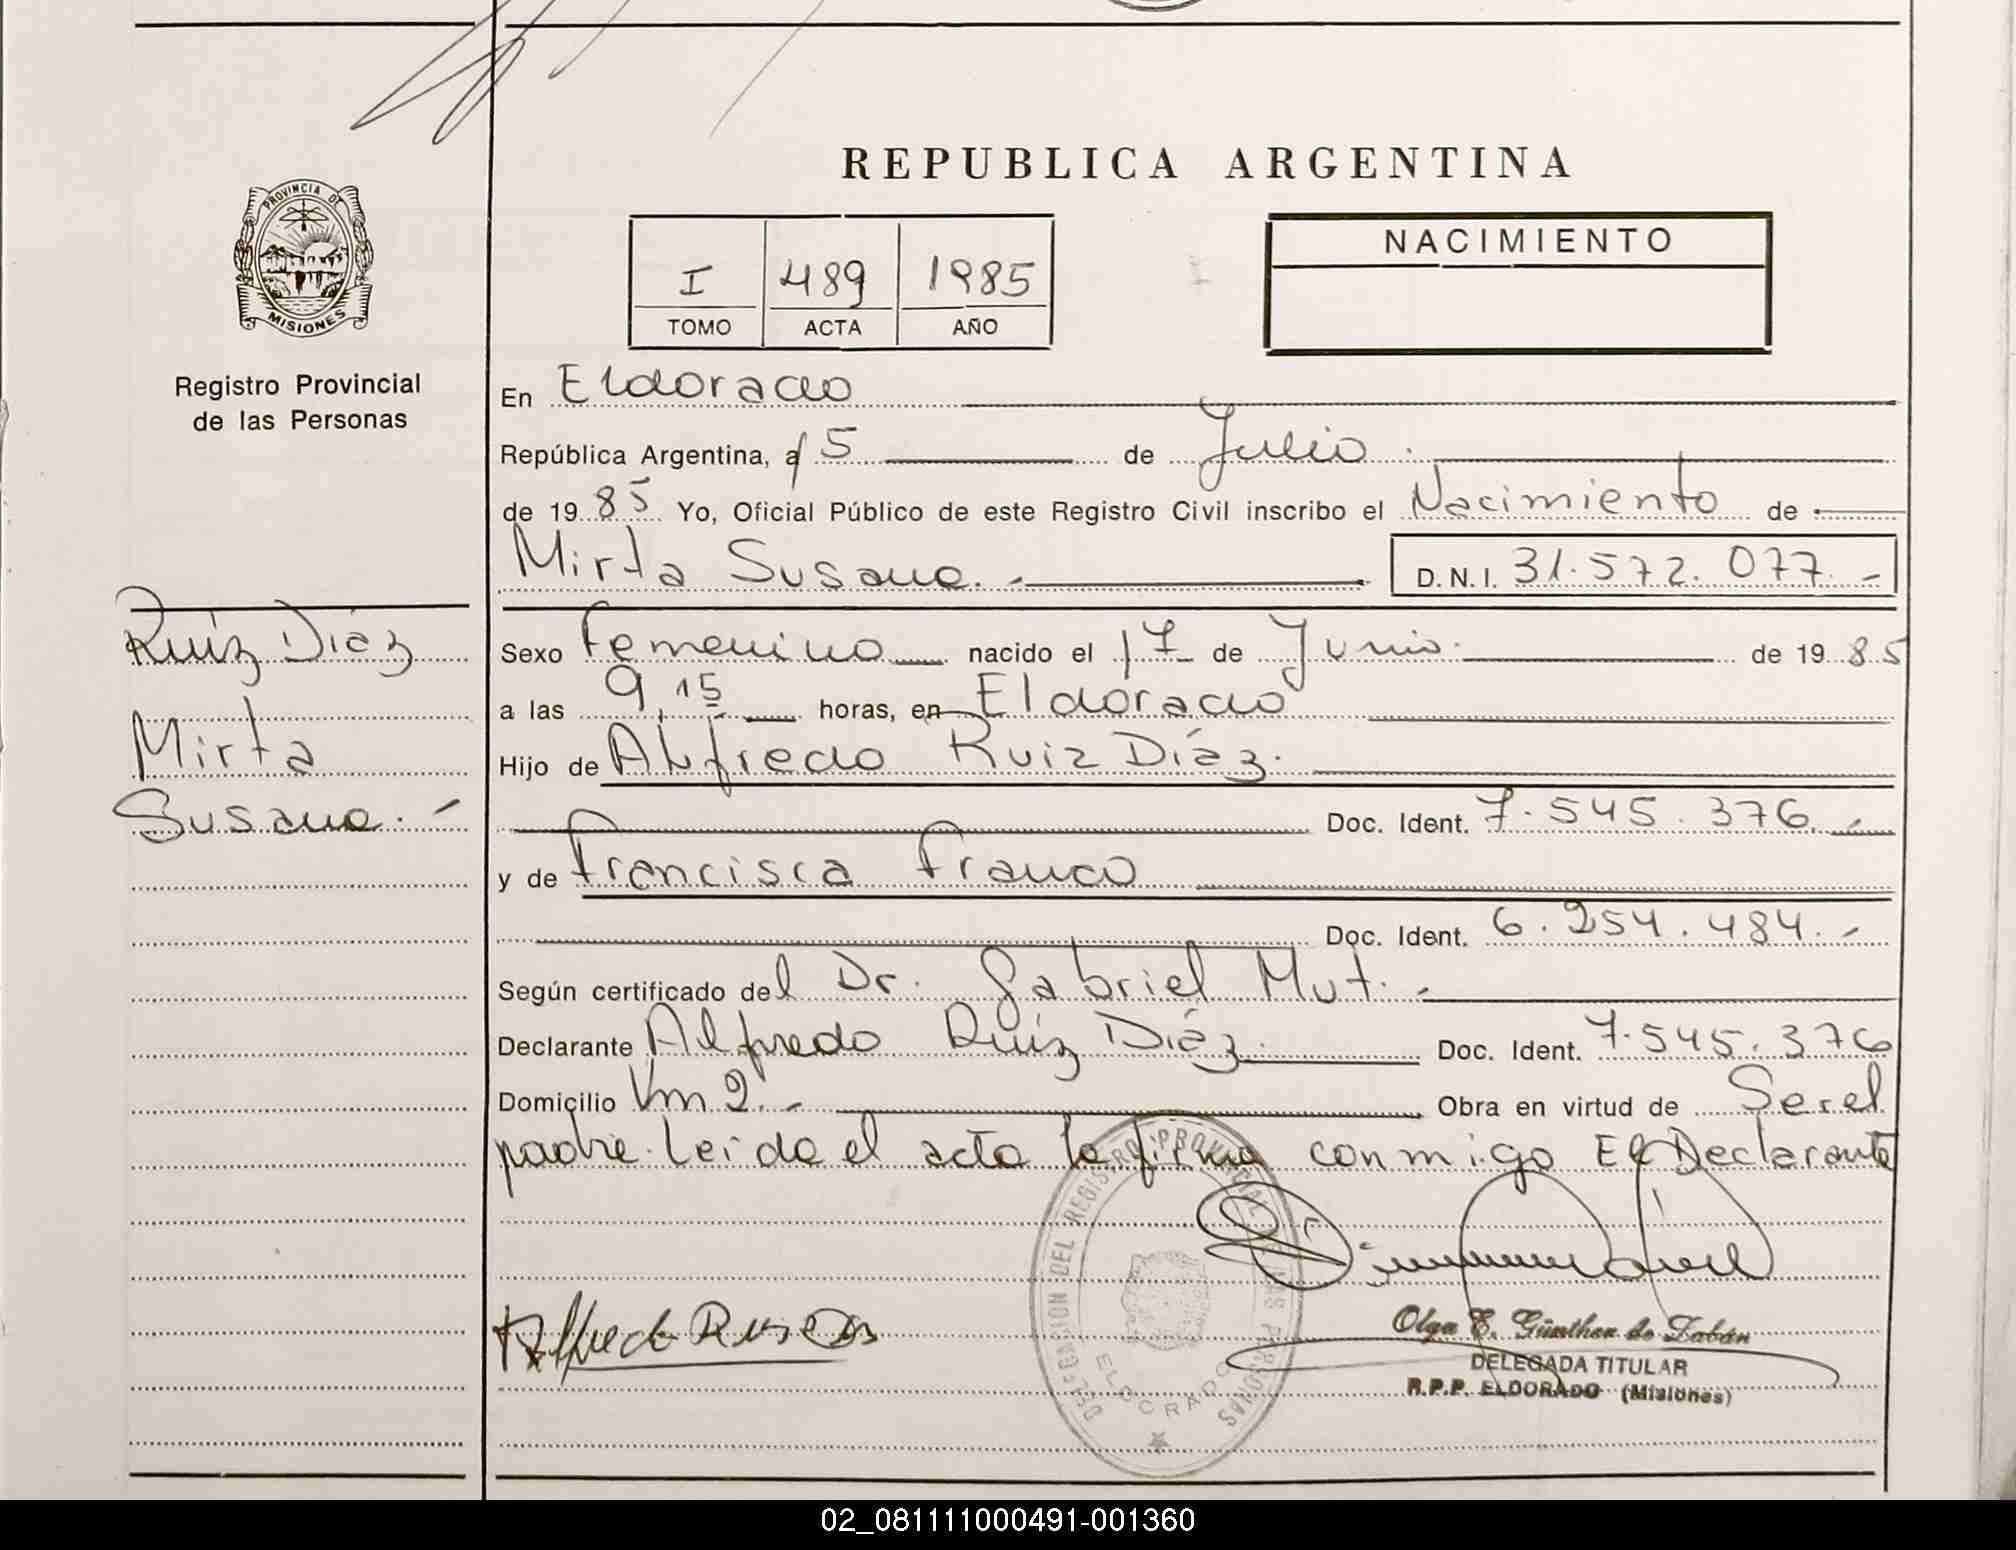 REPUBLICA ARGENTINA
PROVINCIA DE
MISIONES
Registro Provincial
de las Personas
I 489 1985
TOMO ACTA AÑO
NACIMIENTO
En Eldorado
República Argentina, a 5 de Julio
de 1985 Yo, Oficial Público de este Registro Civil inscribo el Nacimiento de
Mirta Susana.- D.N.I. 31.572.077.-
Ruíz Díaz
Mirta
Susana.-
Sexo Femenino nacido el 17 de Junio. de 1985
a las 9,15 horas, en Eldorado
Hijo de Alfredo Ruiz Díaz.
Doc. Ident. 7.545.376.-
y de Francisca Franco
Doc. Ident. 6.254.484.-
Según certificado del Dr. Gabriel Mut.-
Declarante Alfredo Ruíz Díaz. Doc. Ident. 7.545.376
Domicilio Km 2.- Obra en virtud de Ser el
padre. Leida el acta la firma conmigo El Declarante
DELEGACION DEL REGISTRO PROVINCIAL DE LAS PERSONAS
ELDORADO
Olga E. Günther de Zabán
DELEGADA TITULAR
R.P.P. ELDORADO (Misiones)
02_081111000491-001360